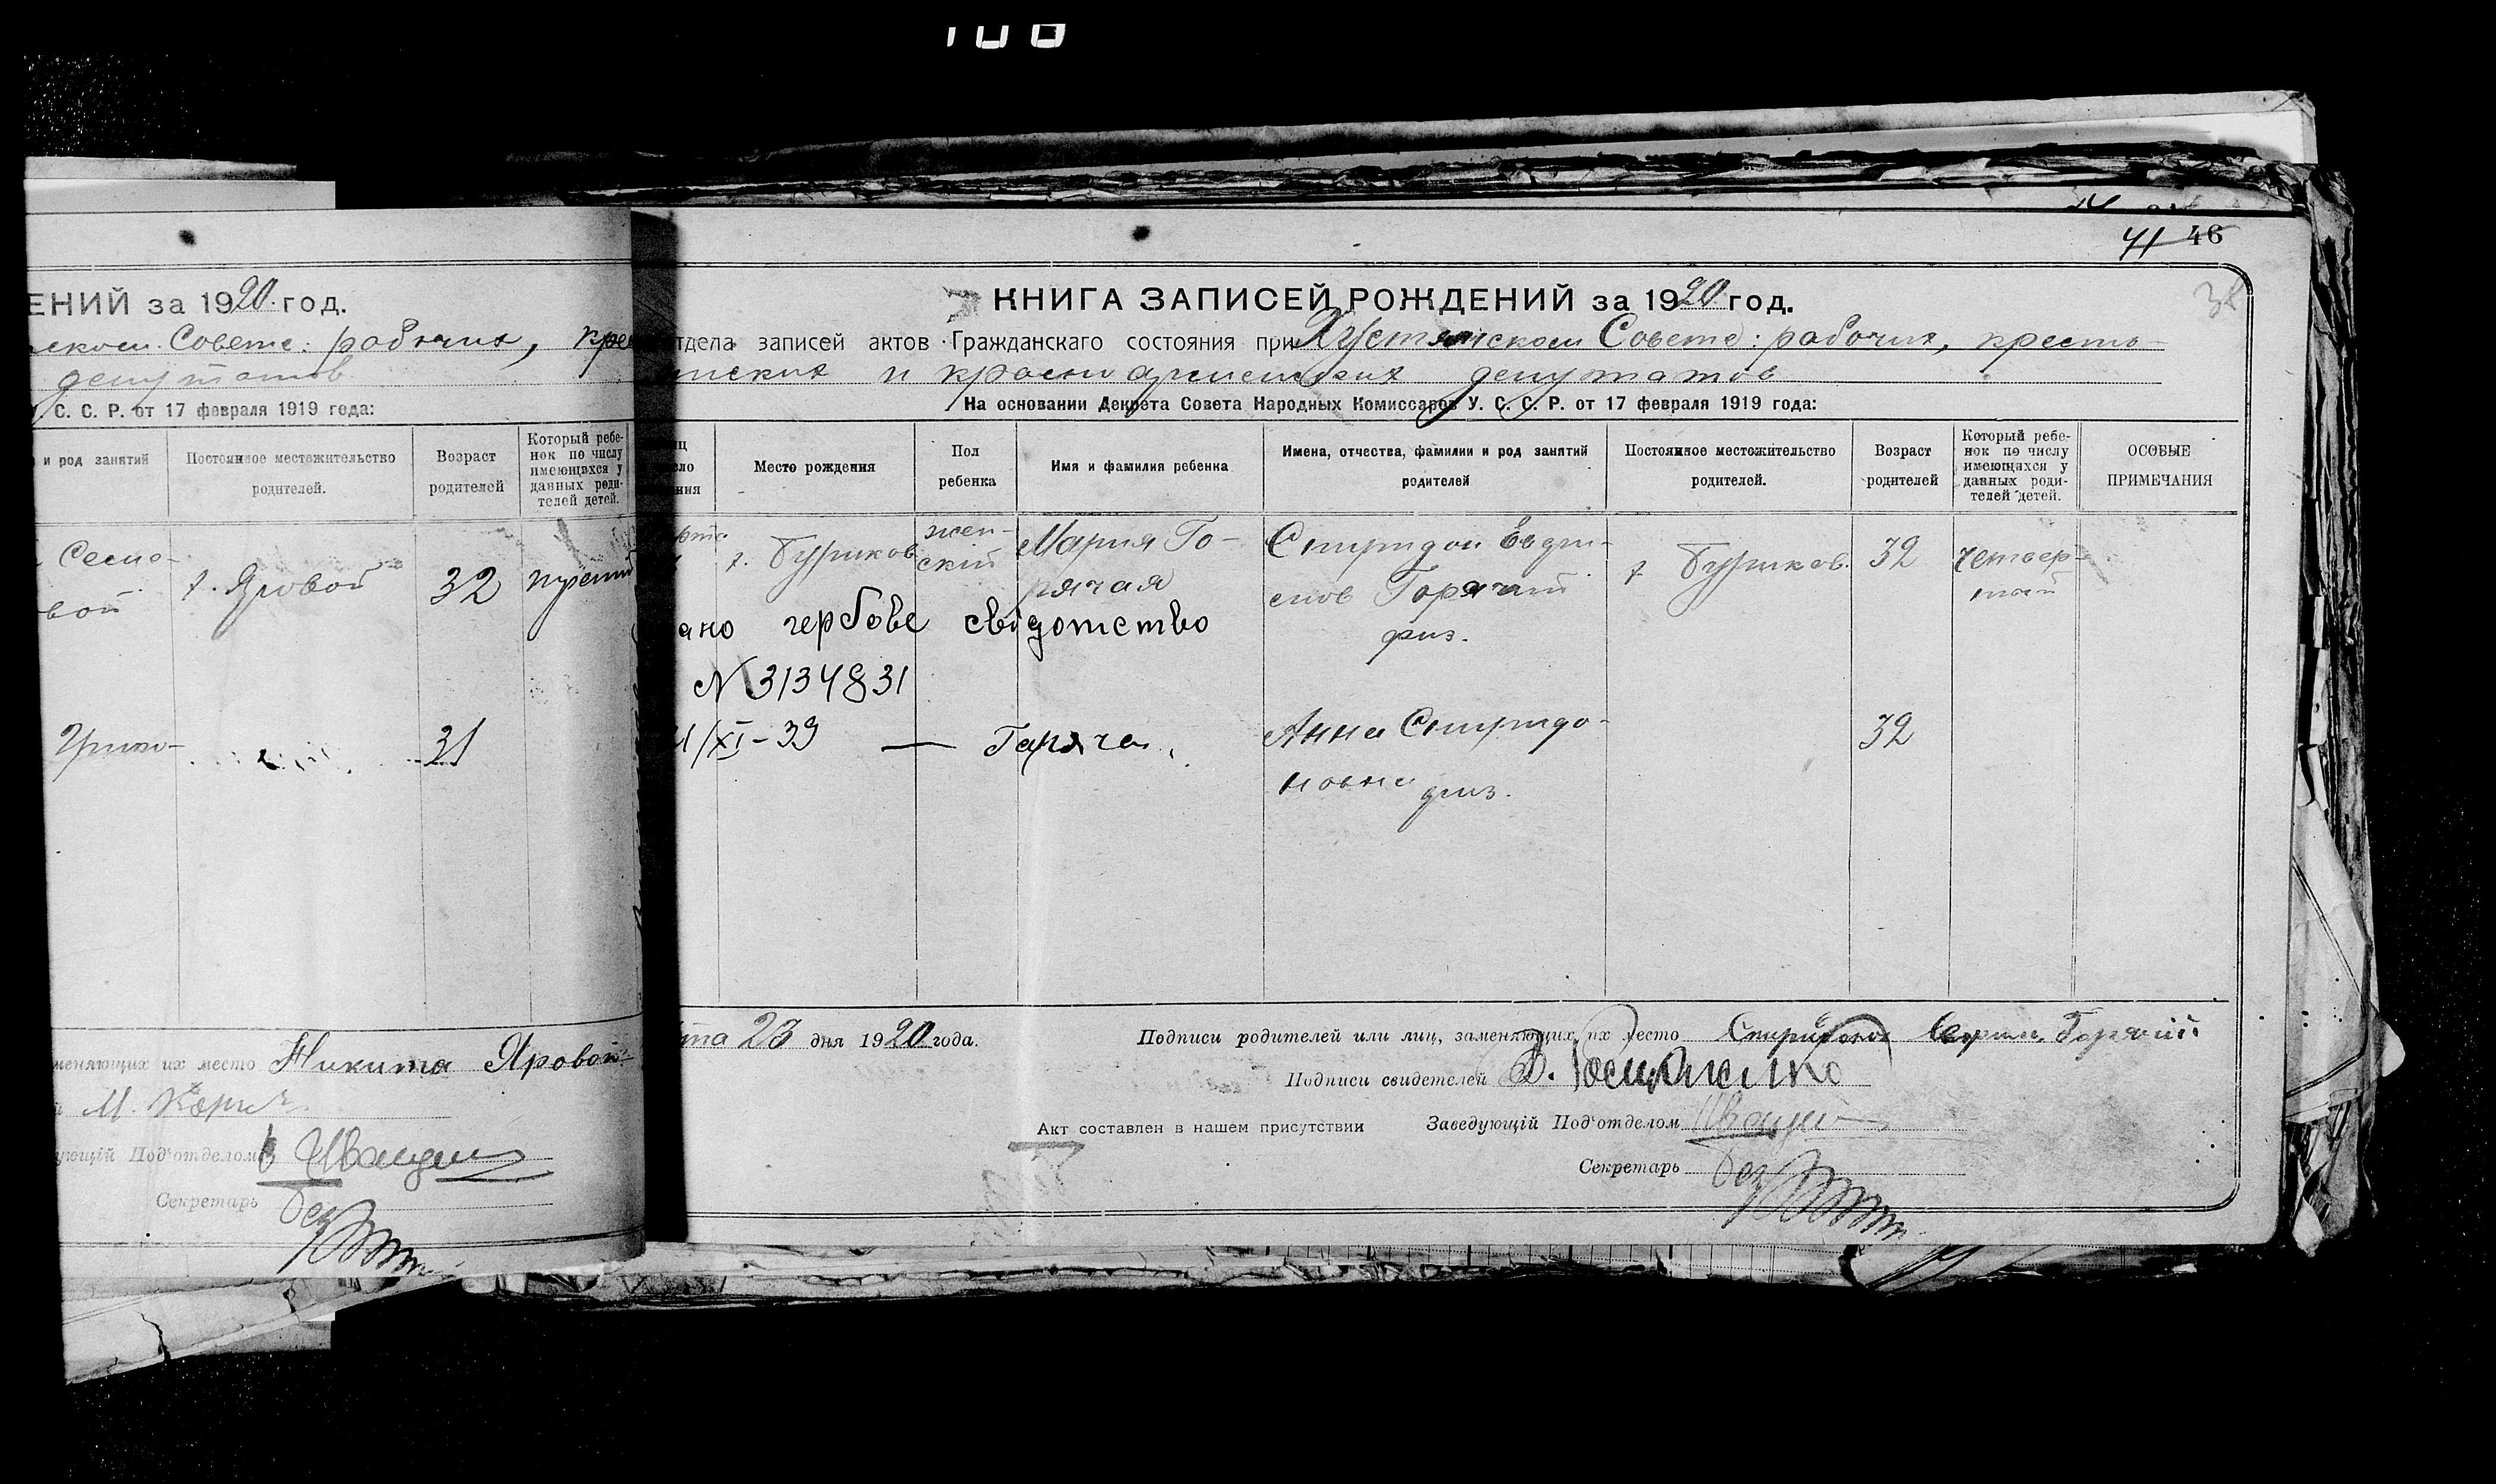 ЕНИЙ за 1920 год.
ском Совете: рабочих, кре
депутатов
С. С. Р. от 17 февраля 1919 года:
и род занятий
Постоянное местожительство
родителей.
Возраст
родителей
Который ребе-
нок по числу
имеющихся у
данных роди-
телей детей.
х. Яровой
32
вой
31
меняющих их место Никита Яровой
М.
ующій Под'отделом
Секретарь
41 46
КНИГА ЗАПИСЕЙ РОЖДЕНИЙ за 1920 год.
тдела записей актов Гражданскаго состояния при Совете: рабочих, кресть-
янских и красноармейских депутатов
На основании Декрета Совета Народных Комиссаров У. С. С. Р. от 17 февраля 1919 года:
Место рождения
Пол
ребенка
Имя и фамилия ребенка
Имена, отчества, фамилии и род занятий
родителей
Постоянное местожительство
родителей.
Возраст
родителей
Который ребе-
нок по числу
имеющихся у
данных роди-
телей детей.
ОСОБЫЕ
ПРИМЕЧАНИЯ
х. Буриков
жен-
скій
Мария Го-
рячая
Спиридон Евдки-
мов Горячий
х. Буриков.
32
четвер-
тый
ано гербове свідотство
N 3134831
1/XI-39 — Гаряча
Анна Спиридо-
новна
32
та 23 дня 1920 года.
Подписи родителей или лиц, заменяющих их место Спиридон Горячий
Подписи свидетелей
Акт составлен в нашем присутствии
Заведующій Под'отделом
Секретарь